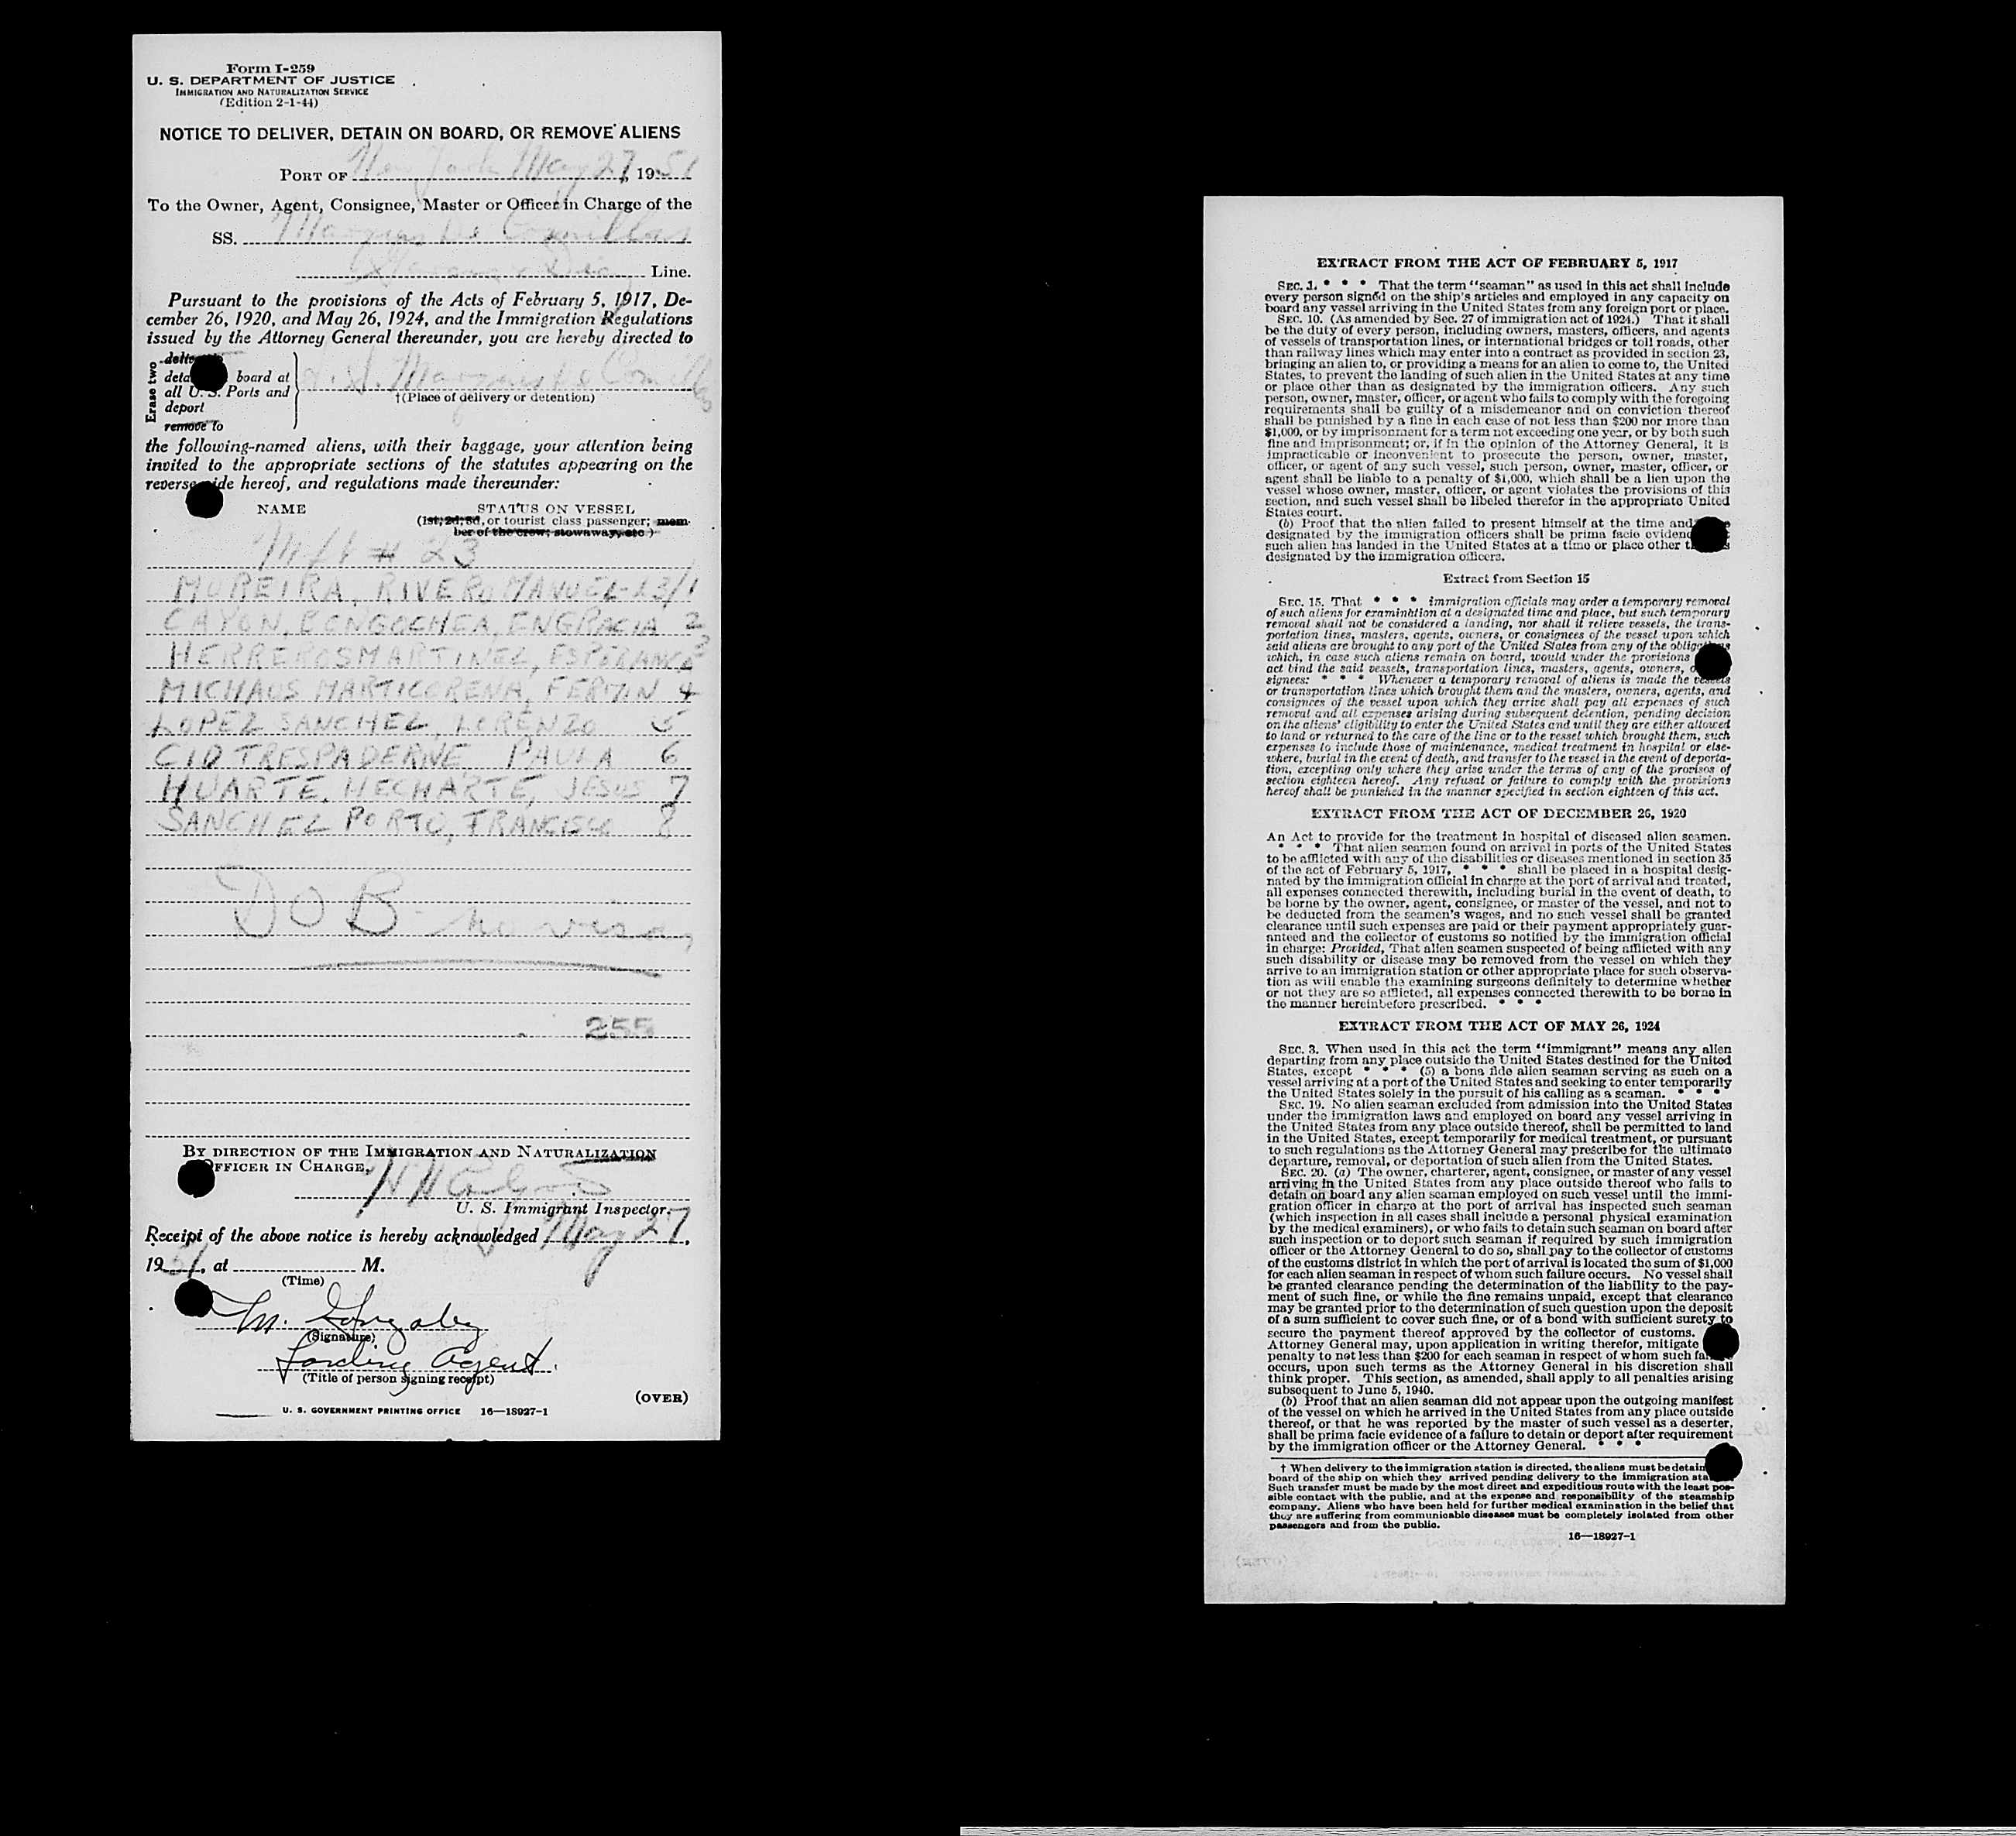 Form I-259
U. S. DEPARTMENT OF JUSTICE
IMMIGRATION AND NATURALIZATION SERVICE
(Edition 2-1-44)
NOTICE TO DELIVER, DETAIN ON BOARD, OR REMOVE ALIENS
PORT OF New York May 27, 1951
To the Owner, Agent, Consignee, Master or Officer in Charge of the
SS. Marques de Comillas
Line.
Pursuant to the provisions of the Acts of February 5, 1917, De-
cember 26, 1920, and May 26, 1924, and the Immigration Regulations
issued by the Attorney General thereunder, you are hereby directed to
Erase two
board at
all U. S. Ports and
deport
remove to
S. S. Marques de Comillas
†(Place of delivery or detention)
the following-named aliens, with their baggage, your attention being
invited to the appropriate sections of the statutes appearing on the
reverse side hereof, and regulations made thereunder:
NAME STATUS ON VESSEL
(1st, 2d, 3d, or tourist class passenger; mem-
ber of the crew; stowaway, etc.)
# 23
MOREIRA, RIVERO, MANUEL-23/1
CAYON, BENGOCHEA, ENGRACIA 2
HERREROS MARTINEZ, ESPERANZA 3
MICHAUS MARTICORENA, FERMIN 4
LOPEZ SANCHEZ, LORENZO 5
CID TRESPADERNE PAULA 6
HUARTE, HECHARTE, JESUS 7
SANCHEZ PORTO, FRANCISCO 8
DOB - no visa
255
BY DIRECTION OF THE IMMIGRATION AND NATURALIZATION
OFFICER IN CHARGE,
U. S. Immigrant Inspector.
Receipt of the above notice is hereby acknowledged May 27,
1951, at M.
(Time)
M. Gonzalez
(Signature)
Landing Agent.
(Title of person signing receipt)
(OVER)
U. S. GOVERNMENT PRINTING OFFICE 16—18927-1
EXTRACT FROM THE ACT OF FEBRUARY 5, 1917
SEC. 1. * * * That the term "seaman" as used in this act shall include
every person signed on the ship's articles and employed in any capacity on
board any vessel arriving in the United States from any foreign port or place.
SEC. 10. (As amended by Sec. 27 of immigration act of 1924.) That it shall
be the duty of every person, including owners, masters, officers, and agents
of vessels of transportation lines, or international bridges or toll roads, other
than railway lines which may enter into a contract as provided in section 23,
bringing an alien to, or providing a means for an alien to come to, the United
States, to prevent the landing of such alien in the United States at any time
or place other than as designated by the immigration officers. Any such
person, owner, master, officer, or agent who fails to comply with the foregoing
requirements shall be guilty of a misdemeanor and on conviction thereof
shall be punished by a fine in each case of not less than $200 nor more than
$1,000, or by imprisonment for a term not exceeding one year, or by both such
fine and imprisonment; or, if in the opinion of the Attorney General, it is
impracticable or inconvenient to prosecute the person, owner, master,
officer, or agent of any such vessel, such person, owner, master, officer, or
agent shall be liable to a penalty of $1,000, which shall be a lien upon the
vessel whose owner, master, officer, or agent violates the provisions of this
section, and such vessel shall be libeled therefor in the appropriate United
States court.
(b) Proof that the alien failed to present himself at the time and
designated by the immigration officers shall be prima facie evidence
such alien has landed in the United States at a time or place other
designated by the immigration officers.
Extract from Section 15
SEC. 15. That * * * immigration officials may order a temporary removal
of such aliens for examination at a designated time and place, but such temporary
removal shall not be considered a landing, nor shall it relieve vessels, the trans-
portation lines, masters, agents, owners, or consignees of the vessel upon which
said aliens are brought to any port of the United States from any of the obligations
which, in case such aliens remain on board, would under the provisions
act bind the said vessels, transportation lines, masters, agents, owners,
signees: * * * Whenever a temporary removal of aliens is made the vessels
or transportation lines which brought them and the masters, owners, agents, and
consignees of the vessel upon which they arrive shall pay all expenses of such
removal and all expenses arising during subsequent detention, pending decision
on the aliens' eligibility to enter the United States and until they are either allowed
to land or returned to the care of the line or to the vessel which brought them, such
expenses to include those of maintenance, medical treatment in hospital or else-
where, burial in the event of death, and transfer to the vessel in the event of deporta-
tion, excepting only where they arise under the terms of any of the provisos of
section eighteen hereof. Any refusal or failure to comply with the provisions
hereof shall be punished in the manner specified in section eighteen of this act.
EXTRACT FROM THE ACT OF DECEMBER 26, 1920
An Act to provide for the treatment in hospital of diseased alien seamen.
* * * That alien seamen found on arrival in ports of the United States
to be afflicted with any of the disabilities or diseases mentioned in section 35
of the act of February 5, 1917, * * * shall be placed in a hospital desig-
nated by the immigration official in charge at the port of arrival and treated,
all expenses connected therewith, including burial in the event of death, to
be borne by the owner, agent, consignee, or master of the vessel, and not to
be deducted from the seamen's wages, and no such vessel shall be granted
clearance until such expenses are paid or their payment appropriately guar-
anteed and the collector of customs so notified by the immigration official
in charge: Provided, That alien seamen suspected of being afflicted with any
such disability or disease may be removed from the vessel on which they
arrive to an immigration station or other appropriate place for such observa-
tion as will enable the examining surgeons definitely to determine whether
or not they are so afflicted, all expenses connected therewith to be borne in
the manner hereinbefore prescribed. * * *
EXTRACT FROM THE ACT OF MAY 26, 1924
SEC. 3. When used in this act the term "immigrant" means any alien
departing from any place outside the United States destined for the United
States, except * * * (5) a bona fide alien seaman serving as such on a
vessel arriving at a port of the United States and seeking to enter temporarily
the United States solely in the pursuit of his calling as a seaman. * * *
SEC. 19. No alien seaman excluded from admission into the United States
under the immigration laws and employed on board any vessel arriving in
the United States from any place outside thereof, shall be permitted to land
in the United States, except temporarily for medical treatment, or pursuant
to such regulations as the Attorney General may prescribe for the ultimate
departure, removal, or deportation of such alien from the United States.
SEC. 20. (a) The owner, charterer, agent, consignee, or master of any vessel
arriving in the United States from any place outside thereof who fails to
detain on board any alien seaman employed on such vessel until the immi-
gration officer in charge at the port of arrival has inspected such seaman
(which inspection in all cases shall include a personal physical examination
by the medical examiners), or who fails to detain such seaman on board after
such inspection or to deport such seaman if required by such immigration
officer or the Attorney General to do so, shall pay to the collector of customs
of the customs district in which the port of arrival is located the sum of $1,000
for each alien seaman in respect of whom such failure occurs. No vessel shall
be granted clearance pending the determination of the liability to the pay-
ment of such fine, or while the fine remains unpaid, except that clearance
may be granted prior to the determination of such question upon the deposit
of a sum sufficient to cover such fine, or of a bond with sufficient surety to
secure the payment thereof approved by the collector of customs.
Attorney General may, upon application in writing therefor, mitigate
penalty to not less than $200 for each seaman in respect of whom such
occurs, upon such terms as the Attorney General in his discretion shall
think proper. This section, as amended, shall apply to all penalties arising
subsequent to June 5, 1940.
(b) Proof that an alien seaman did not appear upon the outgoing manifest
of the vessel on which he arrived in the United States from any place outside
thereof, or that he was reported by the master of such vessel as a deserter,
shall be prima facie evidence of a failure to detain or deport after requirement
by the immigration officer or the Attorney General. * * *
† When delivery to the immigration station is directed, the aliens must be
board of the ship on which they arrived pending delivery to the immigration
Such transfer must be made by the most direct and expeditious route with the least pos-
sible contact with the public, and at the expense and responsibility of the steamship
company. Aliens who have been held for further medical examination in the belief that
they are suffering from communicable diseases must be completely isolated from other
passengers and from the public.
16—18927-1